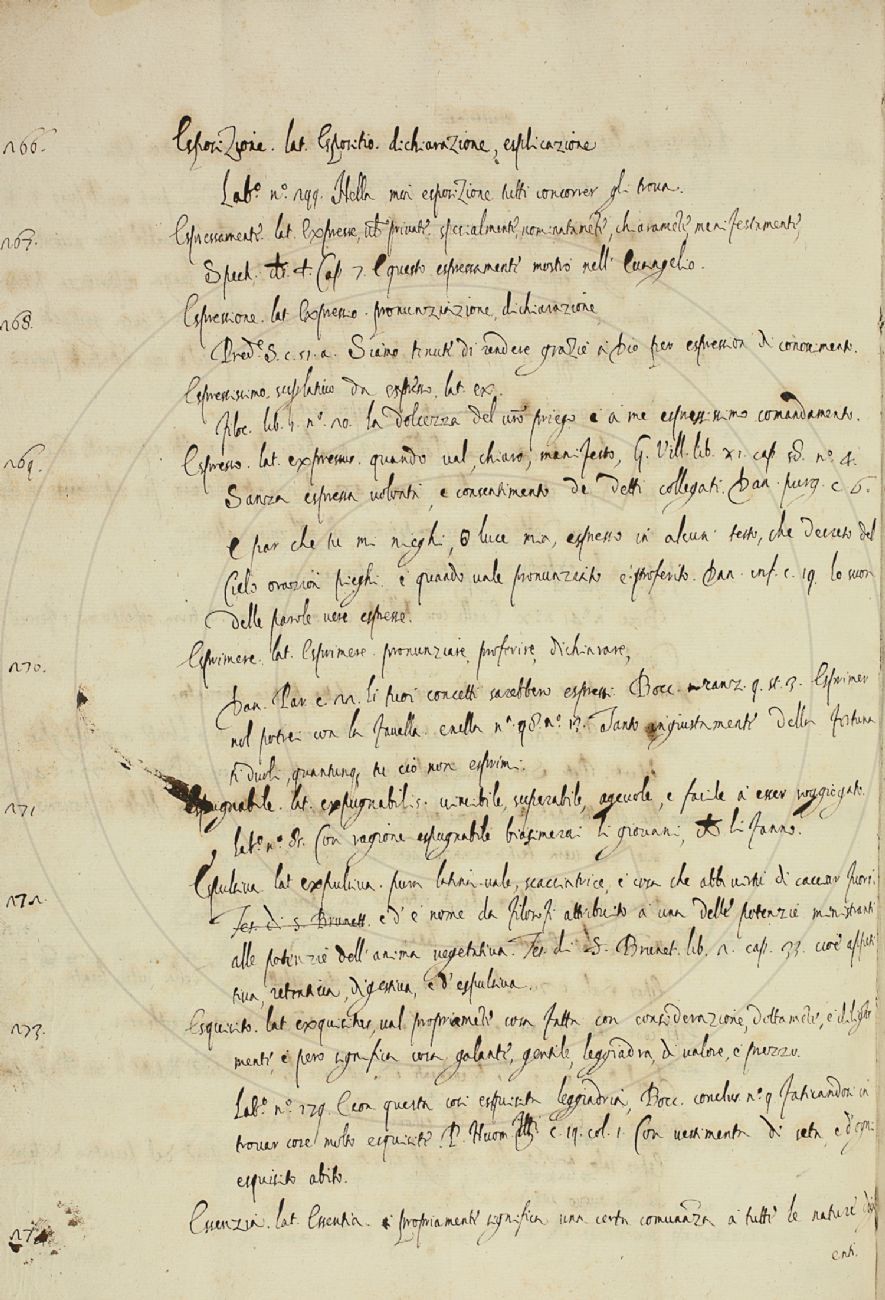 166. Esposizione. lat. Espositio. dichiarazione, esplicazione
Lab.º n.º 199. Nella mia esposizione tutti concorrer gli trova.
167. Espressamente. lat. Expresse, privaté. specialmente, nominatamẽte, chiaramẽte, manifestamente,
Spech. Cap. 7. E questo espressamente mostrò nell' Evangelio.
168. Espressione. lat. Expressio. pronunziazione, dichiarazione
Pred.e S. c. 51. a. Siano tenuti di rendere grazie a Dio per espression di conoscimento.
Espressissimo. suplativo da espresso. lat. ex.
Filoc. lib. 1. n.º 20. la dolcezza del vrõ priego è a me espressissimo comandamento.
169. Espresso. lat. expressus. quando val, chiaro, manifesto, G. Vill. lib. XI. cap. 58. n.º 4.
Sanza espressa volontà, e consentimento de detti collegati. Dan. purg. c. 6.
E par che tu mi nieghi, O luce mia, espresso in alcun testo, che decreto del
Cielo orazion pieghi. e quando vale pronunziato e proferito. Dan. inf. c. 19. lo suon
delle parole vere espresse.
170. Esprimere. lat. Esprimere. pronunziare, proferire, dichiarare,
Dan. Par. c. li tuoi concetti sarebbero espressi. Bocc. canz. 9. st. 3. Esprimer
nol potrei con la favella. e nella n.ª 98. n.º 13. Tanto ingiustamente della fortuna
ti duoli, quantunq, tu ciò non esprimi.
171. Espugnabile. lat. expugnabilis. vincibile, superabile, agevole, e facile a esser soggiogato.
lab.º n.º 81. Con ragione espugnabile biasimerai li giovanni, li fanno.
172. Espulsiva. lat. expulsiva. pura latina vale, scacciatrice, e cosa che abbi virtù di cacciar fuori.
Tes. di S. Brunett. ed' è nome da filosofi attribuito a una delle potenzie ministranti
alle potenzie dell' anima vegetativa. Tes. di S. Brunet. lib. 2. cap. 33. cioè appeti
tiva, retentiva, digestiva, e d' espulsiva.
173. Esquisito. lat. exquisitus, val propriamẽte cosa fatta con considerazione, dottamẽte, e diligẽte
mente, e però significa cosa galante, gentile, leggiadra, di valore, e prezzo.
Lab.º n.º 279. E con questa così esquisita leggiadria, Bocc. conclus. n.º 9 faticandosi in
trovar cose molto esquisite. P. Huom c. 19. col. 1. Con vestimenta di seta, e d'ogni
esquisito abito.
17 Essenzia. lat. Essentia. e propriamente significa una certa comunanza a tutte le nature degli
enti.